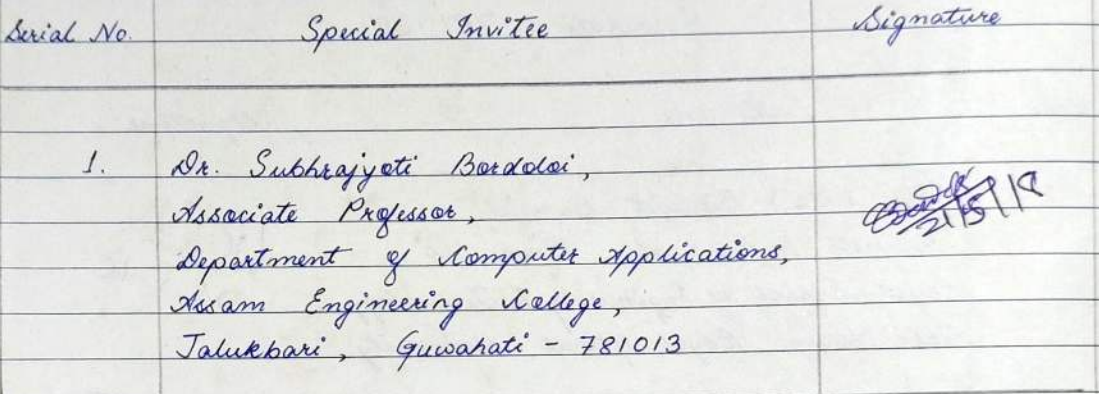 Serial No. Special Invitee Signature
1. Dr. Subhrajyoti Bordoloi,
Associate Professor,
Department of Computer Applications,
Assam Engineering College,
Jalukbari, Guwahati - 781013
21/5/18